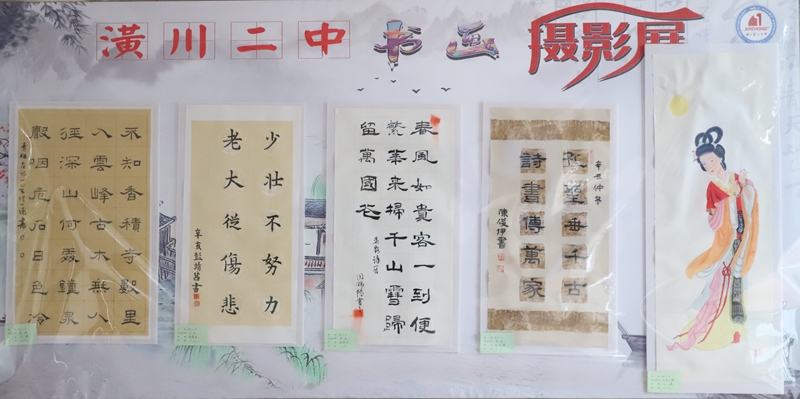 潢川二中书画摄影展
不知香積寺數里
入雲峰古木無人
徑深山何處鐘泉
聲咽危石日色冷
少壯不努力
老大從傷悲
春風如貴客一到便
繁華来掃千山雪歸
留萬國花
辛丑仲冬
孔聖垂千古
詩書傳萬家